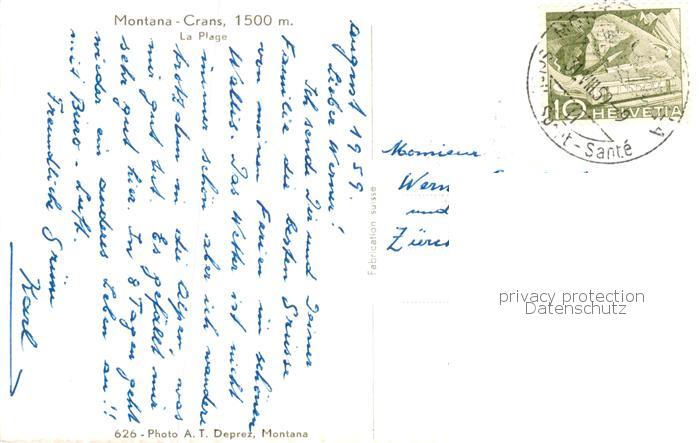 Montana - Crans, 1500 m.
La Plage
august 1959.
Lieber Werner!
Ich sende Dir und Deiner
Familie die besten Grüsse
von meinen Ferien im schönen
Wallis. Das Wetter ist nicht
immer schön aber ich wandere
trotzdem in die Alpen, was
mir gut tut. Es gefällt mir
sehr gut hier. In 8 Tagen geht
wieder ein anderes Leben an!!
mit Büro-Luft.
Freundliche Grüsse
Karl
626 - Photo A. T. Deprez, Montana
Fabrication suisse
Monsieur
Wern
und
Züri
10 HELVETIA
privacy protection
Datenschutz